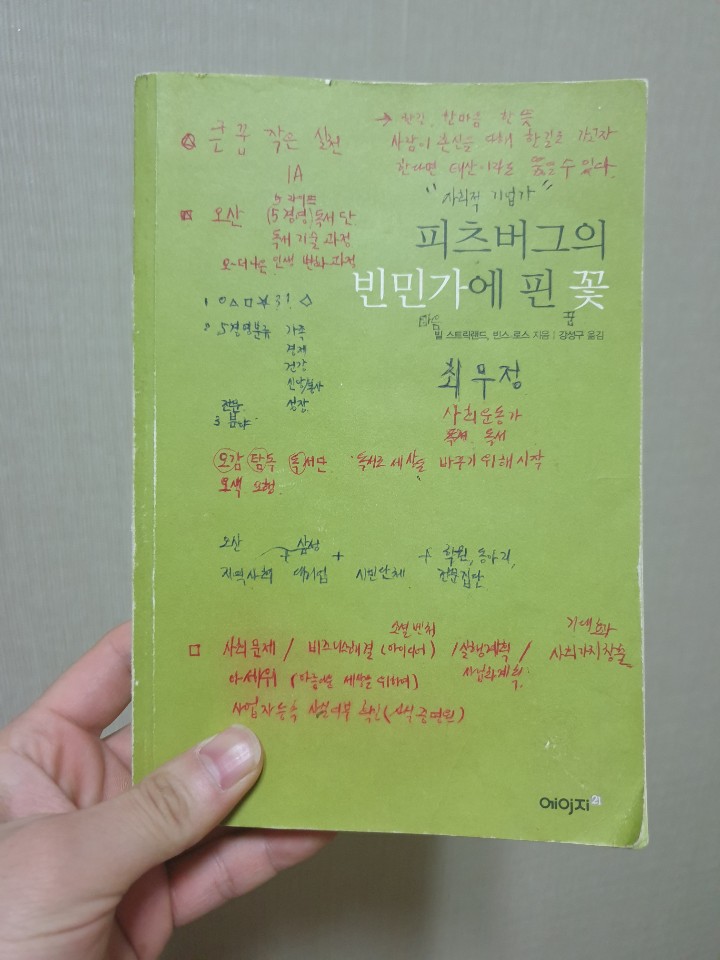 큰 꿈 작은 실천
1A
→ 한길, 한마음 한 뜻
사람이 혼신을 다해 한길을 가고자
한다면 태산이라도 뚫을 수 있다.
"사회적 기업가"
오산 (5경영) 독서단
독서 기술 과정
오-더나은 인생 변화 과정
피츠버그의
빈민가에 핀 꽃
마음
꿈
빌 스트릭랜드, 빈스 로스 지음 | 강성구 옮김
최무정
사회운동가
독서
5경영분류 가족
경제
건강
신앙/봉사
성장
전문
3 분야
오감 탐독 독서단 · 독서로 세상을 바꾸기 위해 시작
오색
오산 + 삼성 + + 학원, 동아리,
지역사회 대기업 시민단체 전문집단
소셜벤처
기대효과
□ 사회문제 / 비즈니스해결 (아이디어) / 실행계획 / 사회가치창출
사업화계획
아세위 (아름다운 세상을 위하여)
사업자등록 확인
에이지21